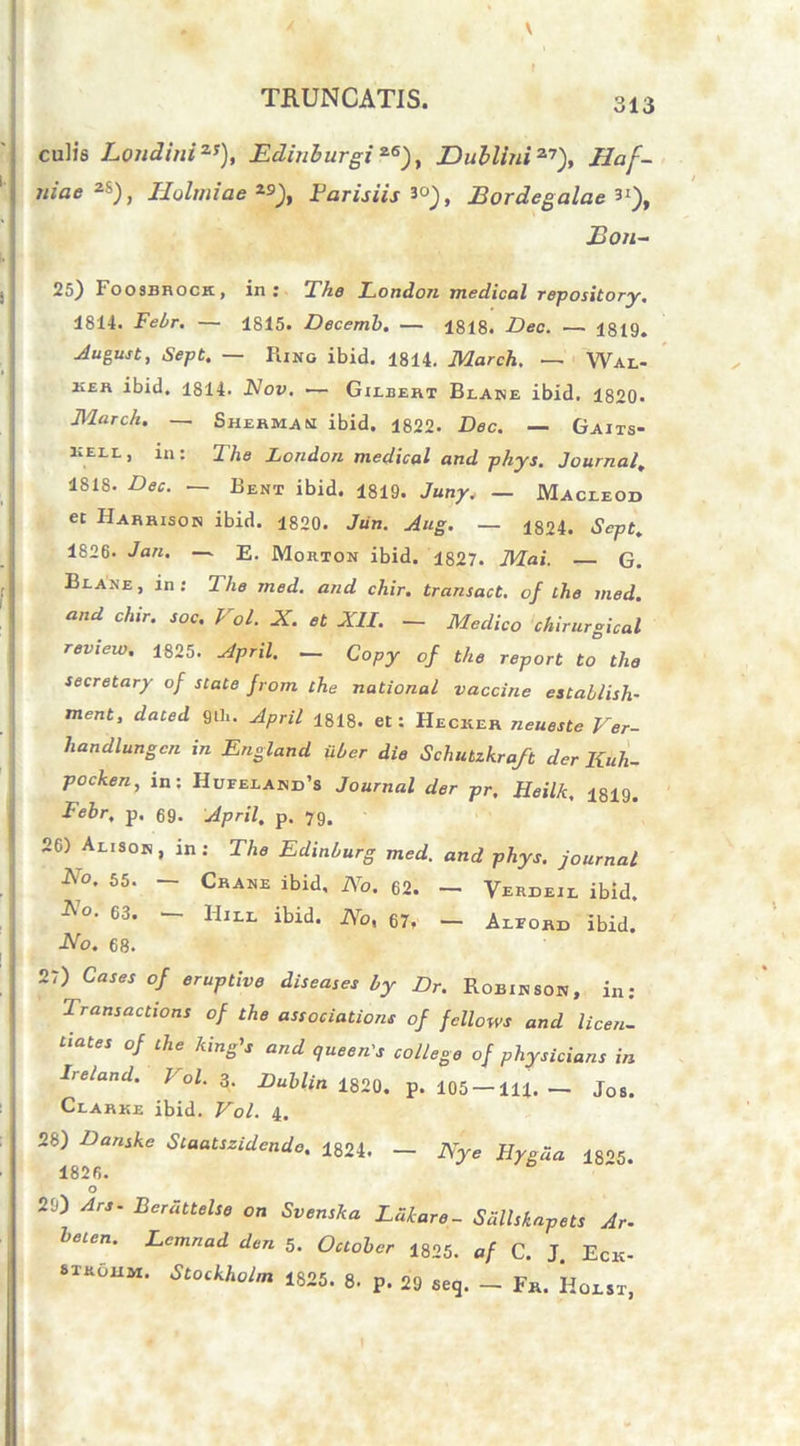 TRUNCATIS.
313
culis Londini ²⁵), Edinburgi ²⁶), Dublini ²⁷), Haf-
niae ²⁸), Holmiae ²⁹), Parisiis ³⁰), Bordegalae ³¹),
Bon-
25) Foosbrock, in: The London medical repository.
1814. Febr. — 1815. Decemb. — 1818. Dec. — 1819.
August, Sept. — Ring ibid. 1814. March. — Wal-
ker ibid. 1814. Nov. — Gilbert Blane ibid. 1820.
March. — Sherman ibid. 1822. Dec. — Gaits-
kell, in: The London medical and phys. Journal.
1818. Dec. — Bent ibid. 1819. Juny. — Macleod
et Harrison ibid. 1820. Jun. Aug. — 1824. Sept.
1826. Jan. — E. Morton ibid. 1827. Mai. — G.
Blane, in: The med. and chir. transact. of the med.
and chir. soc. Vol. X. et XII. — Medico chirurgical
review. 1825. April. — Copy of the report to the
secretary of state from the national vaccine establish-
ment, dated 9th. April 1818. et: Hecker neueste Ver-
handlungen in England über die Schutzkraft der Kuh-
pocken, in: Hufeland's Journal der pr. Heilk. 1819.
Febr. p. 69. April. p. 79.
26) Alison, in: The Edinburg med. and phys. journal
No. 55. — Crane ibid. No. 62. — Verdeil ibid.
No. 63. — Hill ibid. No. 67. — Alford ibid.
No. 68.
27) Cases of eruptive diseases by Dr. Robinson, in:
Transactions of the associations of fellows and licen-
tiates of the king's and queen's college of physicians in
Ireland. Vol. 3. Dublin 1820. p. 105—111. — Jos.
Clarke ibid. Vol. 4.
28) Danske Staatszidende. 1824. — Nye Hygäa 1825.
1826.
29) Års- Berättelse on Svenska Läkare- Sällskapets Ar-
beten. Lemnad den 5. October 1825. af C. J. Eck-
ströhm. Stockholm 1825. 8. p. 29 seq. — Fr. Holst,